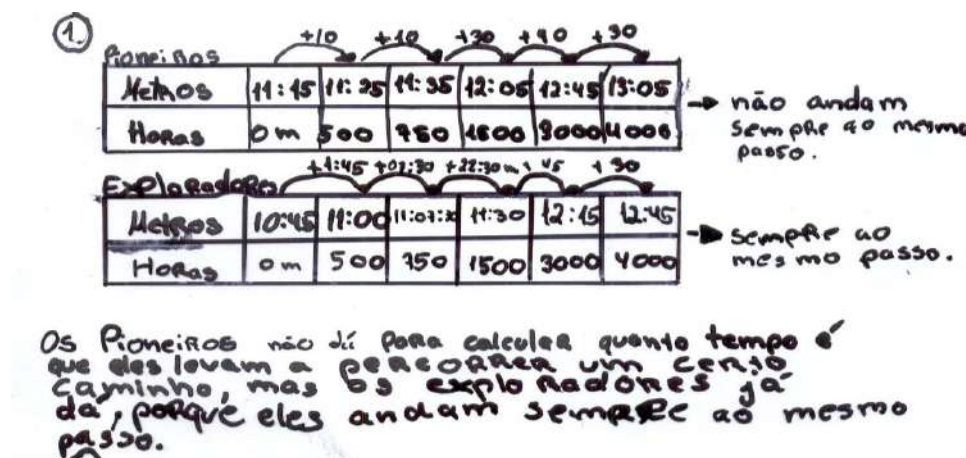 1.
+10 +10 +30 +40 +30
Pioneiros
Metros 11:15 11:25 11:35 12:05 12:45 13:05
Horas 0 m 500 750 1500 3000 4000
→ não andam
sempre ao mesmo
passo.
+1:45 +07:30 +22:30m + 45 + 30
Exploradores
Metros 10:45 11:00 11:07:30 11:30 12:15 12:45
Horas 0 m 500 750 1500 3000 4000
→ sempre ao
mesmo passo.
Os Pioneiros não dá para calcular quanto tempo é
que eles levam a percorrer um certo
caminho, mas os exploradores já
dá, porque eles andam sempre ao mesmo
passo.